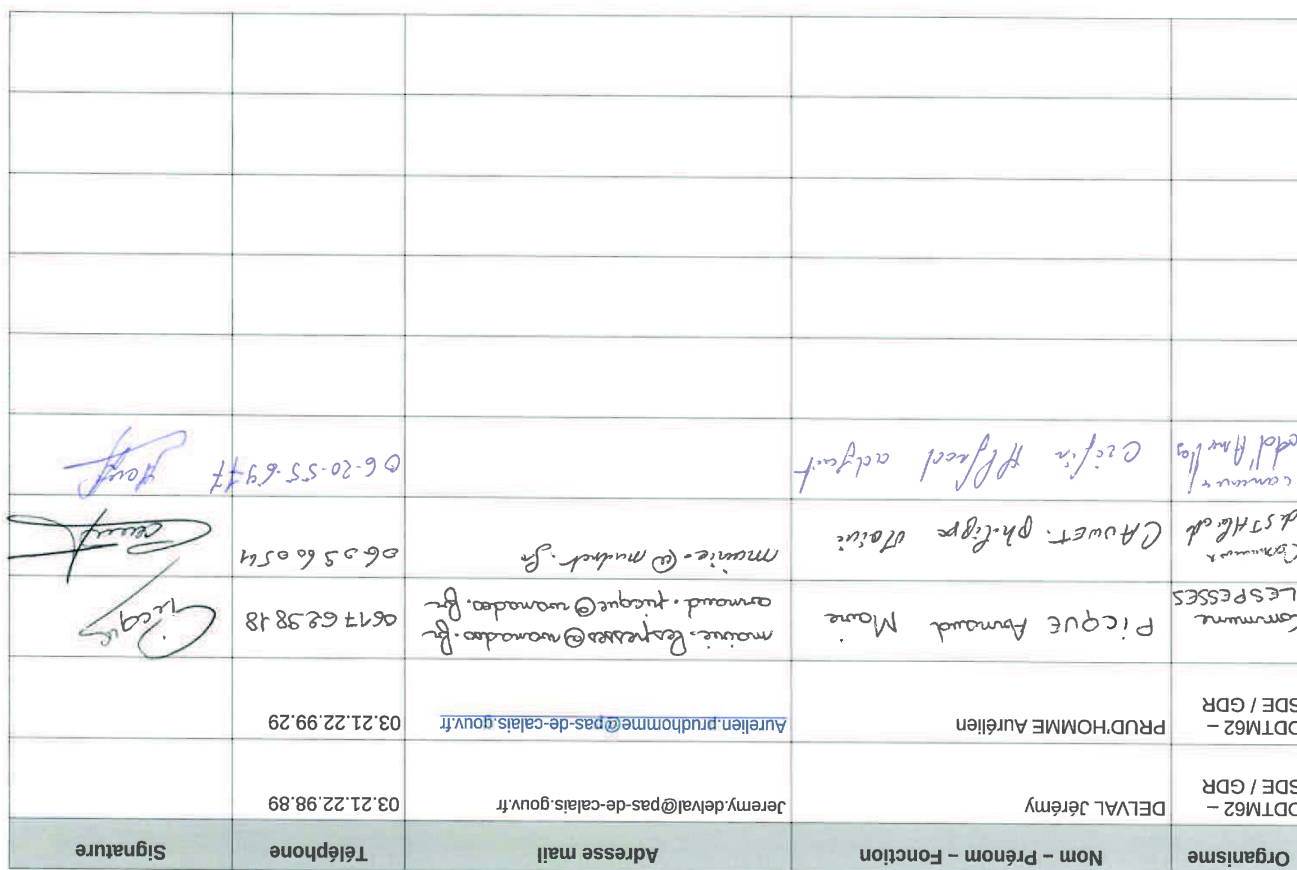 Organisme Nom – Prénom – Fonction Adresse mail Téléphone Signature
DDTM62 –
SDE / GDR
DELVAL Jérémy
Jeremy.delval@pas-de-calais.gouv.fr
03.21.22.98.89
DDTM62 –
SDE / GDR
PRUD'HOMME Aurélien
Aurelien.prudhomme@pas-de-calais.gouv.fr
03.21.22.99.29
Commune
LESPESSES
PICQUE Arnaud Maire
mairie.lespesses@wanadoo.fr
arnaud.picque@wanadoo.fr
0617 62 38 18
Picque
Commune
de ST Hilaire
CAUWET. philippe
06
06-20-55-64 77
adjoint